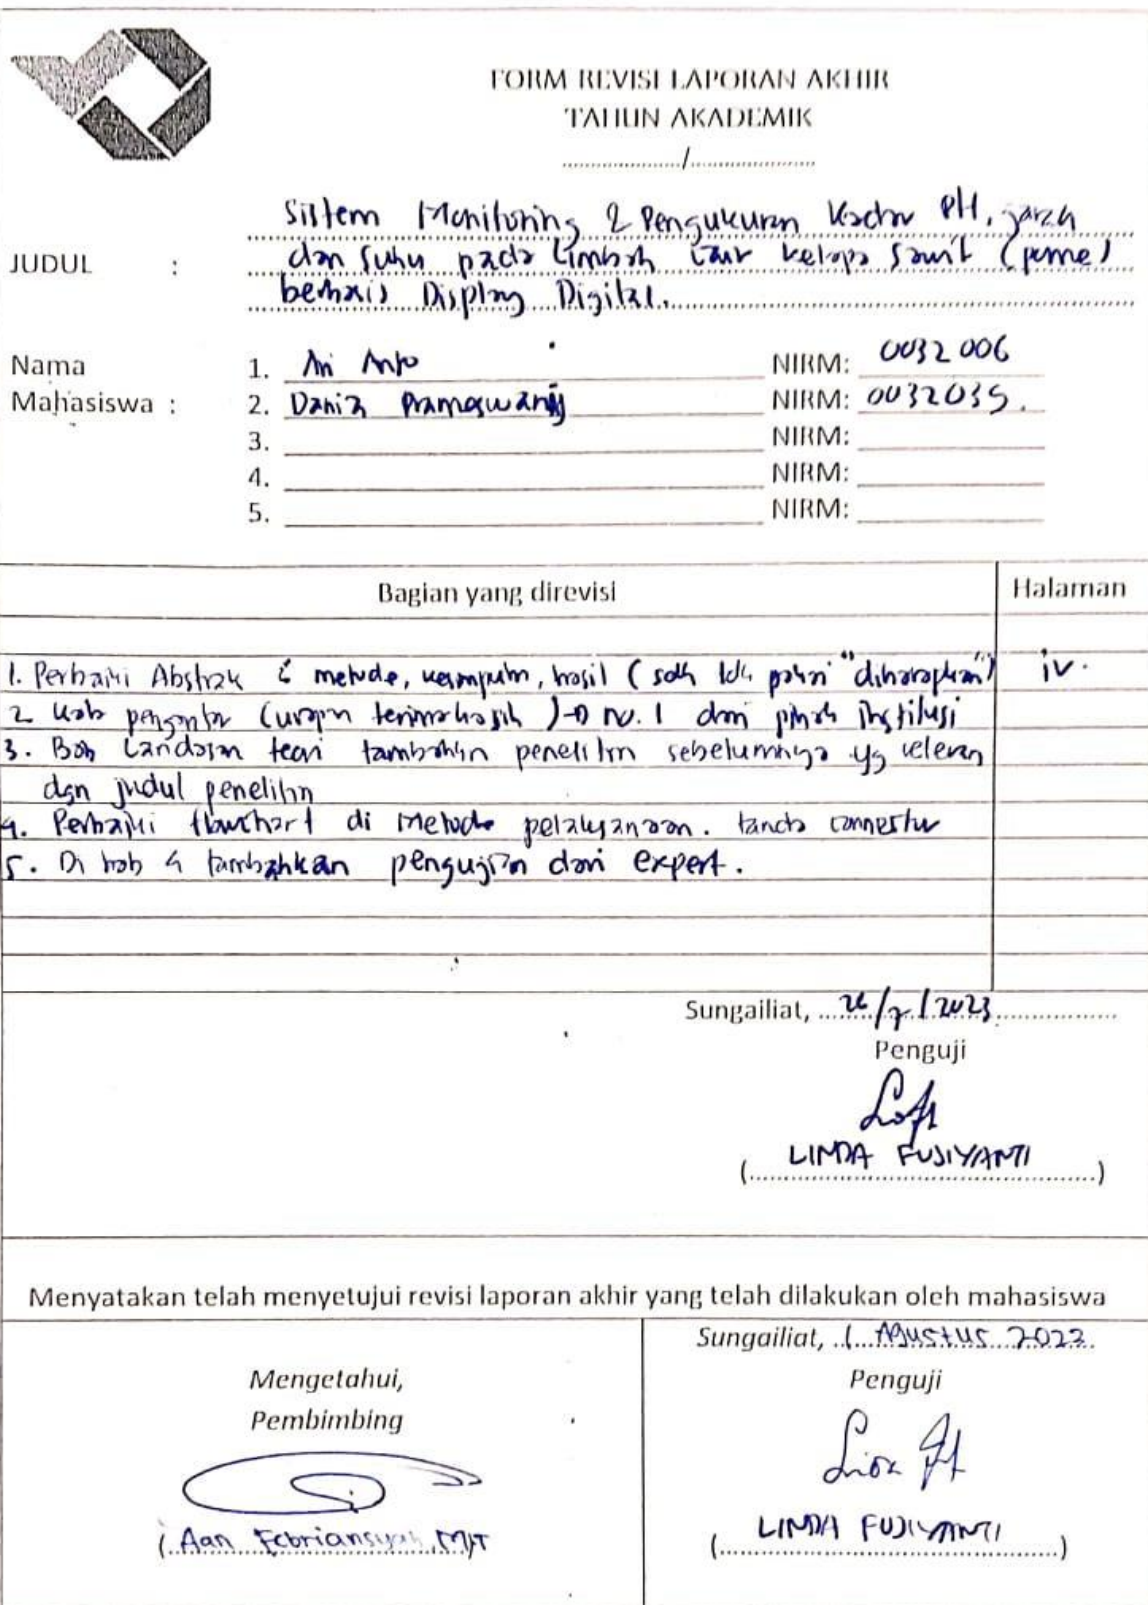 FORM REVISI LAPORAN AKHIR
TAHUN AKADEMIK
..................../.....................
JUDUL : Sistem Monitoring & Pengukuran Kadar PH, jarak
dan suhu pada Limbah Cair kelapa sawit (pome)
berbasis Display Digital.
Nama
Mahasiswa :
1. Ari Anto NIRM: 0032006
2. Dania Prameswary NIRM: 0032035.
3. NIRM:
4. NIRM:
5. NIRM:
Bagian yang direvisi Halaman
1. Perbaiki Abstrak metode, kesimpulan, hasil (sdh tdk pakai "diharapkan") iv.
2 Kata pengantar (ucapan terimakasih) → no. 1 dari pihak institusi
3. Bab Landasan teori tambahkan penelitian sebelumnya yg relevan
dgn judul penelitian
4. Perbaiki flowchart di metode pelaksanaan. tanda connector
5. Di bab 4 tambahkan pengujian dari expert.
Sungailiat, 26/7/2023
Penguji
(LINDA FUJIYANTI)
Menyatakan telah menyetujui revisi laporan akhir yang telah dilakukan oleh mahasiswa
Mengetahui,
Pembimbing
(Aan Febriansyah, M.T
Sungailiat, 1 Agustus 2023
Penguji
(LINDA FUJIYANTI)